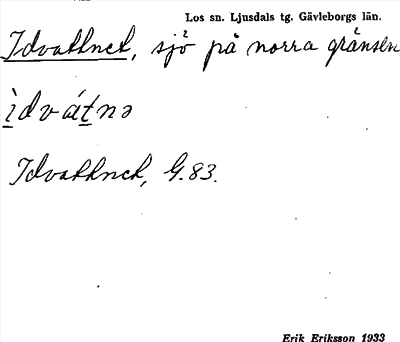 Los sn. Ljusdals tg. Gävleborgs län.
Idvattnet, sjö på norra gränsen
ìdvátnə
Idvattnet, G.83.
Erik Eriksson 1933